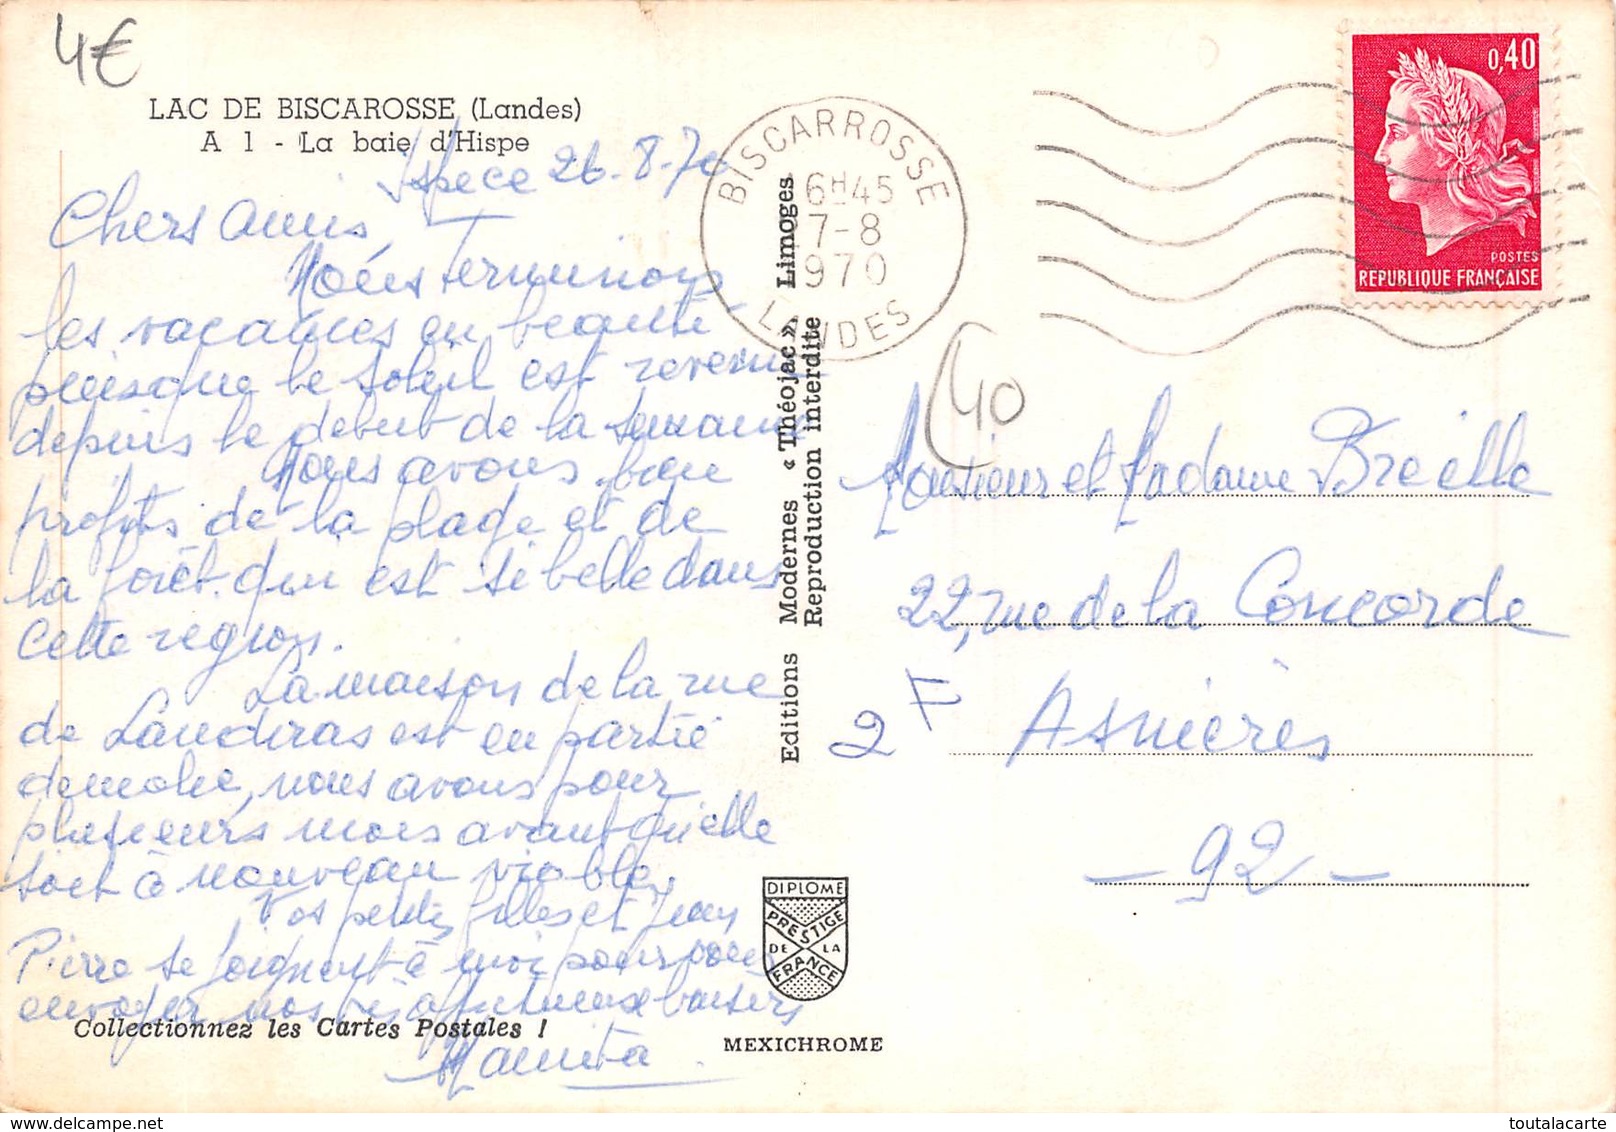 4€
LAC DE BISCAROSSE (Landes)
A 1 - La baie d'Hispe
Ispece 26-8-70
Chers amis,
Nous terminons
les vacances en beauté
puisque le soleil est revenu
depuis le debut de la semaine
Nous avons bien
profités de la plage et de
la forêt qui est si belle dans
cette region.
La maison de la rue
de Landiras est en partie
demolie, nous avons pour
plusieurs mois avant qu'elle
soit à nouveau
Vos petites filles et Jean
Pierre se joignent à moi pour vous
envoyer nos affectueux baisers
Mamita
Collectionnez les Cartes Postales !
Editions Modernes « Théojac », Limoges
Reproduction interdite
DIPLOME
PRESTIGE
DE LA
FRANCE
MEXICHROME
BISCARROSSE
6H45
7-8
970
LANDES
0,40
POSTES
REPUBLIQUE FRANÇAISE
40
Monsieur et Madame Breille
22, rue de la Concorde
2F
Asnières
- 92 -
toutalacarte